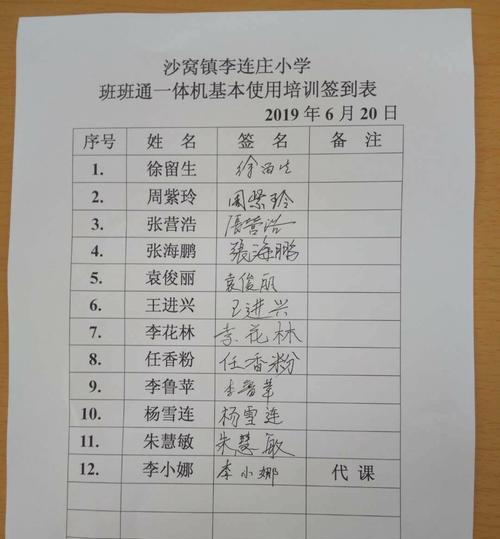 沙窝镇李连庄小学
班班通一体机基本使用培训签到表
2019 年 6 月 20 日
序号 姓 名 签 名 备 注
1. 徐留生 徐留生
2. 周紫玲 周紫玲
3. 张营浩 張营浩
4. 张海鹏 張海鹏
5. 袁俊丽 袁俊丽
6. 王进兴 王进兴
7. 李花林 李花林
8. 任香粉 任香粉
9. 李鲁苹 李鲁苹
10. 杨雪连 杨雪连
11. 朱慧敏 朱慧敏
12. 李小娜 李小娜 代 课